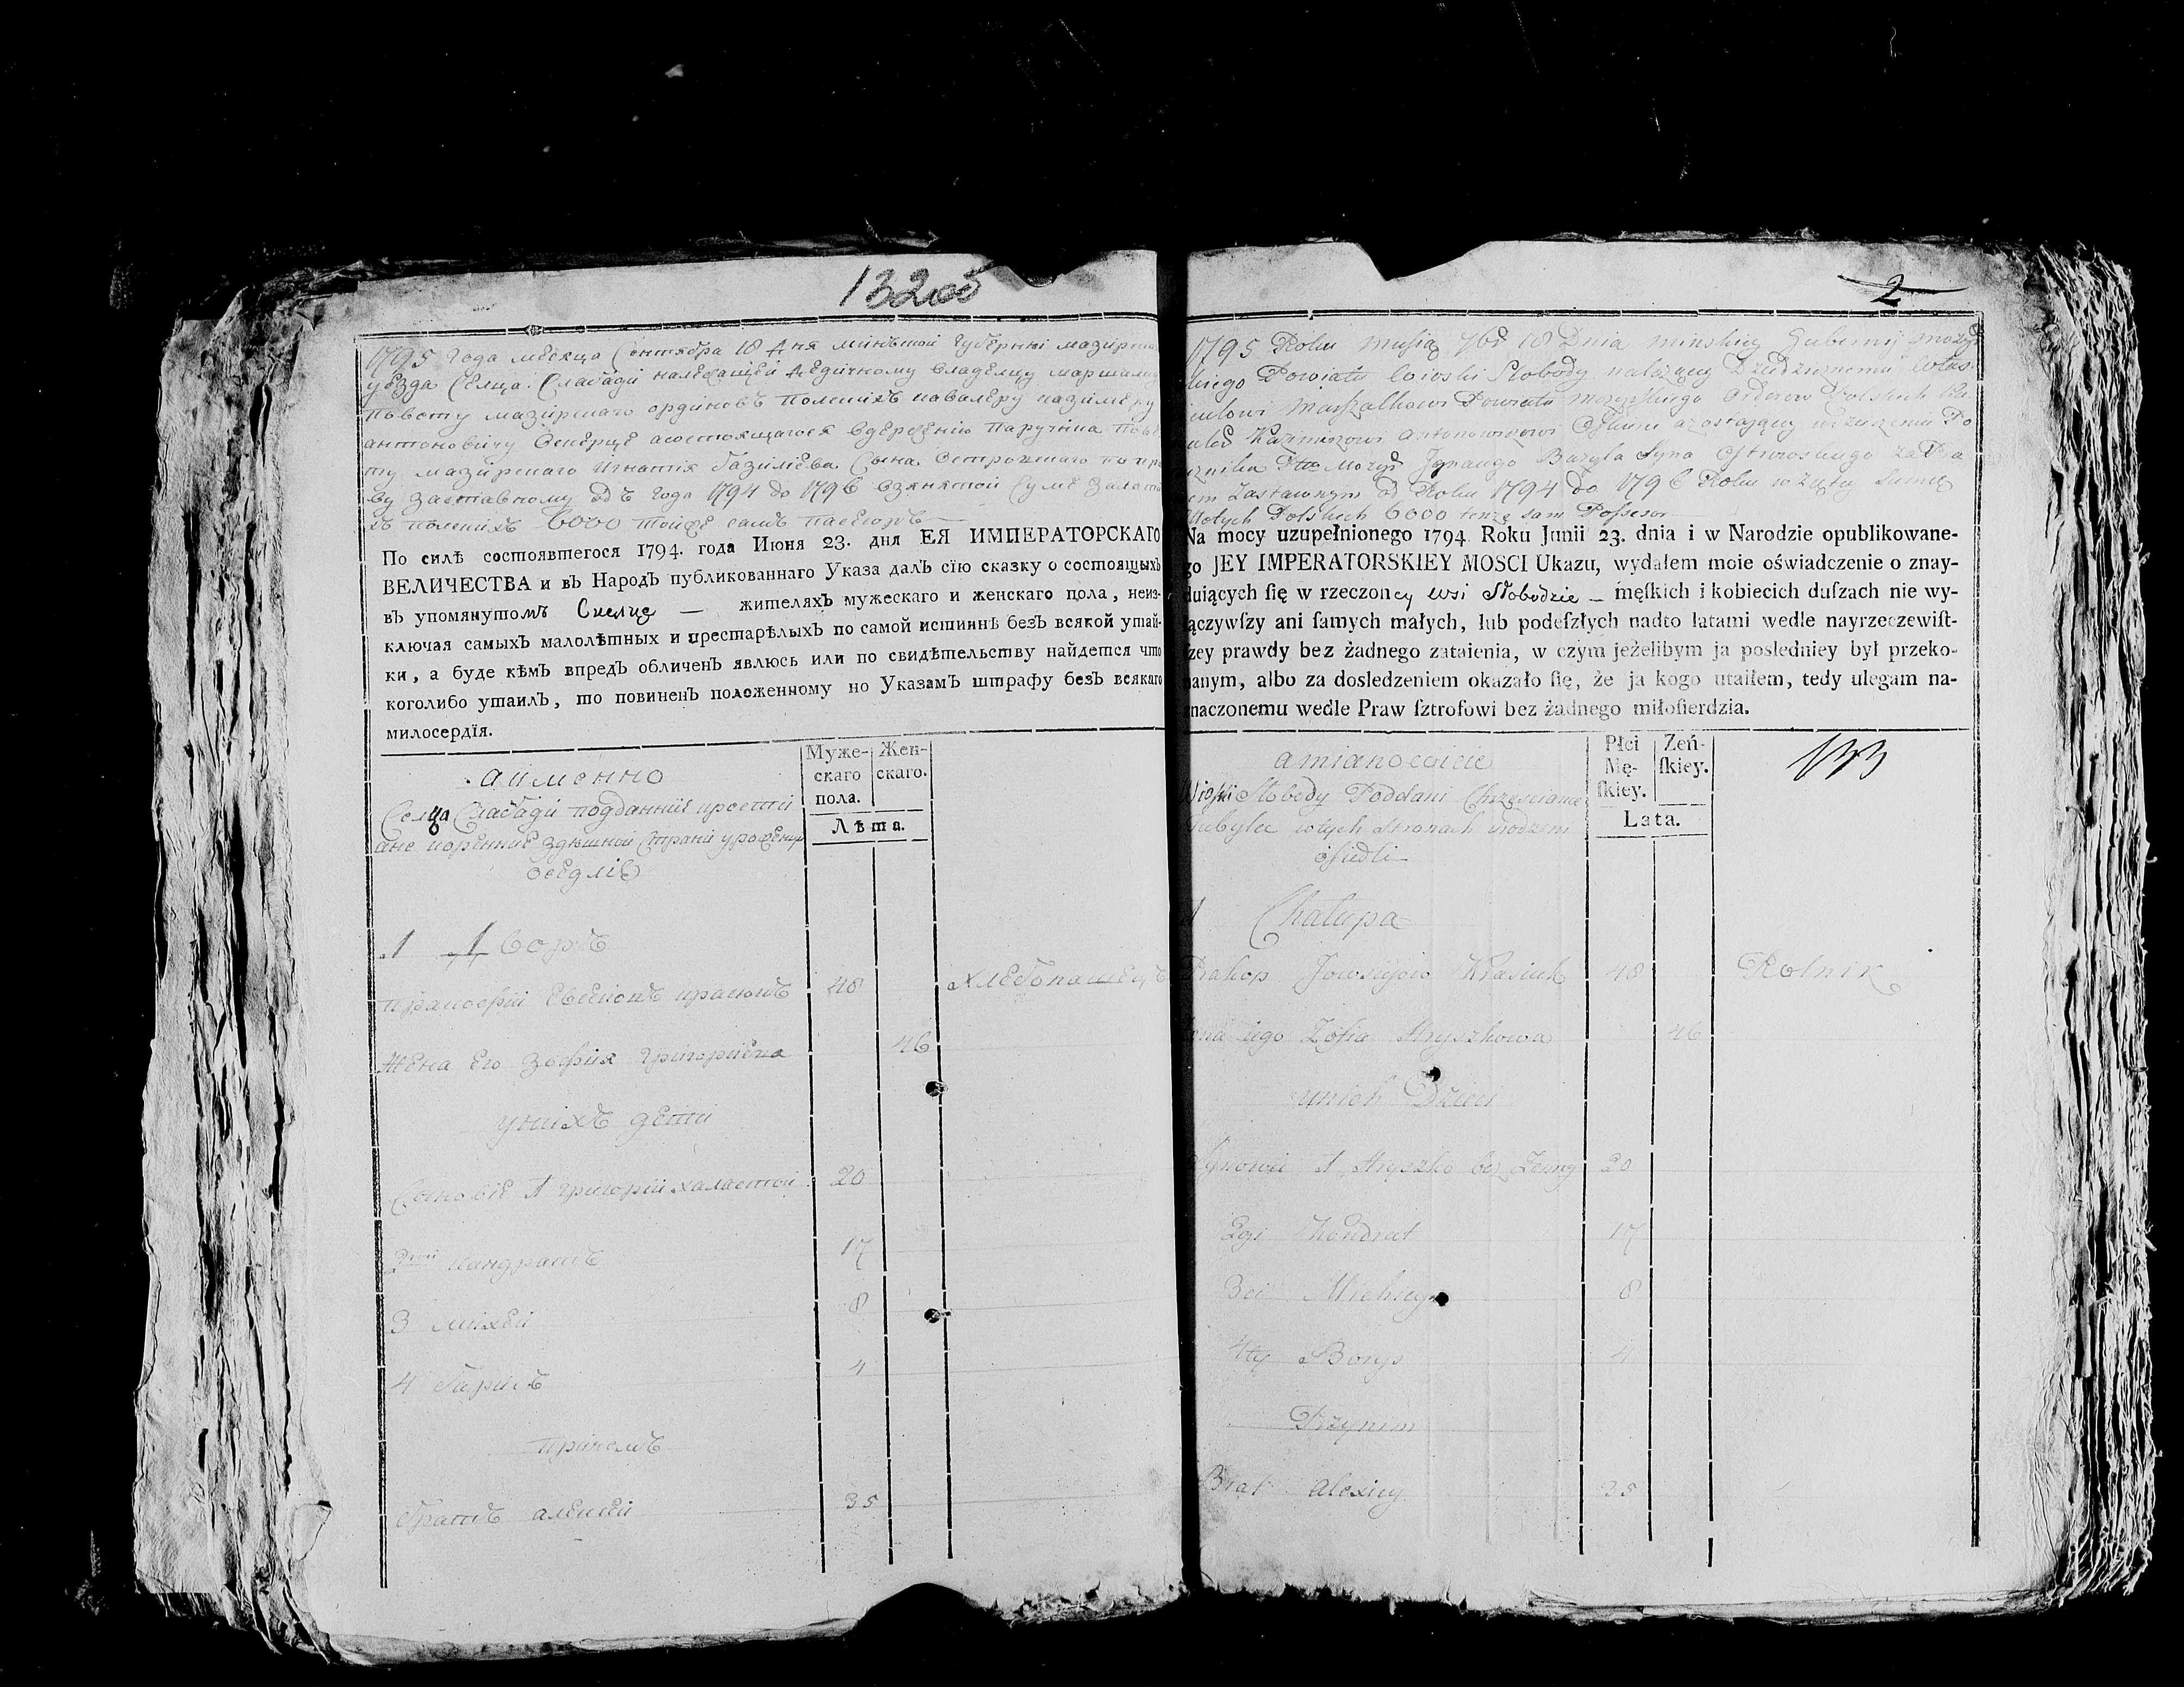 132об
1795 года месяца Сентября 18 дня минской губернии мазирска
уезда Селца Слабади належащей дедичному владелцу маршалку
повету мазирскаго ординовъ полскихъ кавалеру казимеру
антоновичу асостоящагося вдержению паручика
ту мазирскаго игнатия базилиева Сына Островскаго по пра
ву заставному одъ года 1794 до 1796 взянятой Суме
хъ полскихъ 6000 тойже самъ пасесоръ
По силѣ состоявшегося 1794. года Июня 23. дня ЕЯ ИМПЕРАТОРСКАГО
ВЕЛИЧЕСТВА и въ Народъ публикованнаго Указа далъ сїю сказку о состоящыхъ
въ упомянутомъ Сиелце — жителяхъ мужескаго и женскаго пола, неиз-
ключая самыхъ малолѣтныхъ и престарѣлыхъ по самой истиннѣ безъ всякой утай-
ки, а буде кѣмъ впредъ обличенъ явлюсь или по свидѣтельству найдется что
коголибо утаилъ, то повиненъ положенному по Указамъ штрафу безъ всякаго
милосердїя.
аименно
Муже-
скаго
пола.
Жен-
скаго.
Лѣта.
Селца Слабади подданние
ане коренние здешной страни
оседлие
1 Дворъ
Евсеиовъ красюкъ 48 хлебопашецъ
жена его Зофия григориева 46
унихъ дети
Сынове 1 григорий халастой 20
2гий кандратъ 17
3 михей 8
4 барисъ 4
принемъ
братъ алексей 35
2
1795 Roku 18 Dnia minskiey Gubernij mozyr
skiego Powiatu Wioski Slobody należącey Dziedzicznemu Własc
icielowi Marszałkowi Powiatu mozyrskiego Orderow Polskich Ka
Kazimierzowi Antonowiczowi azostającey wdzierzeniu Po
rucznika Ptto Mozyr Ignacego Bazyla Syna Ostrowskiego za Pra
em Zastawnym od Roku 1794 do 1796 Roku wziętey Sumie
złotych Polskich 6000 tenże sam Possesor
Na mocy uzupełnionego 1794 Roku Junii 23. dnia i w Narodzie opublikowane-
go JEY IMPERATORSKIEY MOSCI Ukazu, wydałem moie oświadczenie o znay-
duiących ſię w rzeczoney wsi Słobodzie — męſkich i kobiecich duſzach nie wy-
ączywſzy ani ſamych małych, lub podeſzłych nadto latami wedle nayrzeczewiſt-
zey prawdy bez żadnego zataienia, w czym jeżelibym ja posledniey był przeko-
nanym, albo za dosledzeniem okazało ſię, że ja kogo utaiłem, tedy ulegam na-
znaczonemu wedle Praw ſztrofowi bez żadnego miłoſierdzia.
amianowicie
Płci
Mę-
ſkiey.
Zeń-
ſkiey.
Lata.
133
Wioski Słobody Poddani Chrzescianie
wtych Stronach urodzeni
osiedli
1 Chałupa
Prakop Krasiuk 48 Rolnik
żona iego Zofia Hryszkowa 46
unich Dzieci
Synowie 1 Hryszko bez Żenny 20
2gi Kondrat 17
3ci Michiey 8
4ty Borys 4
Przynim
Brat Alexiey 35